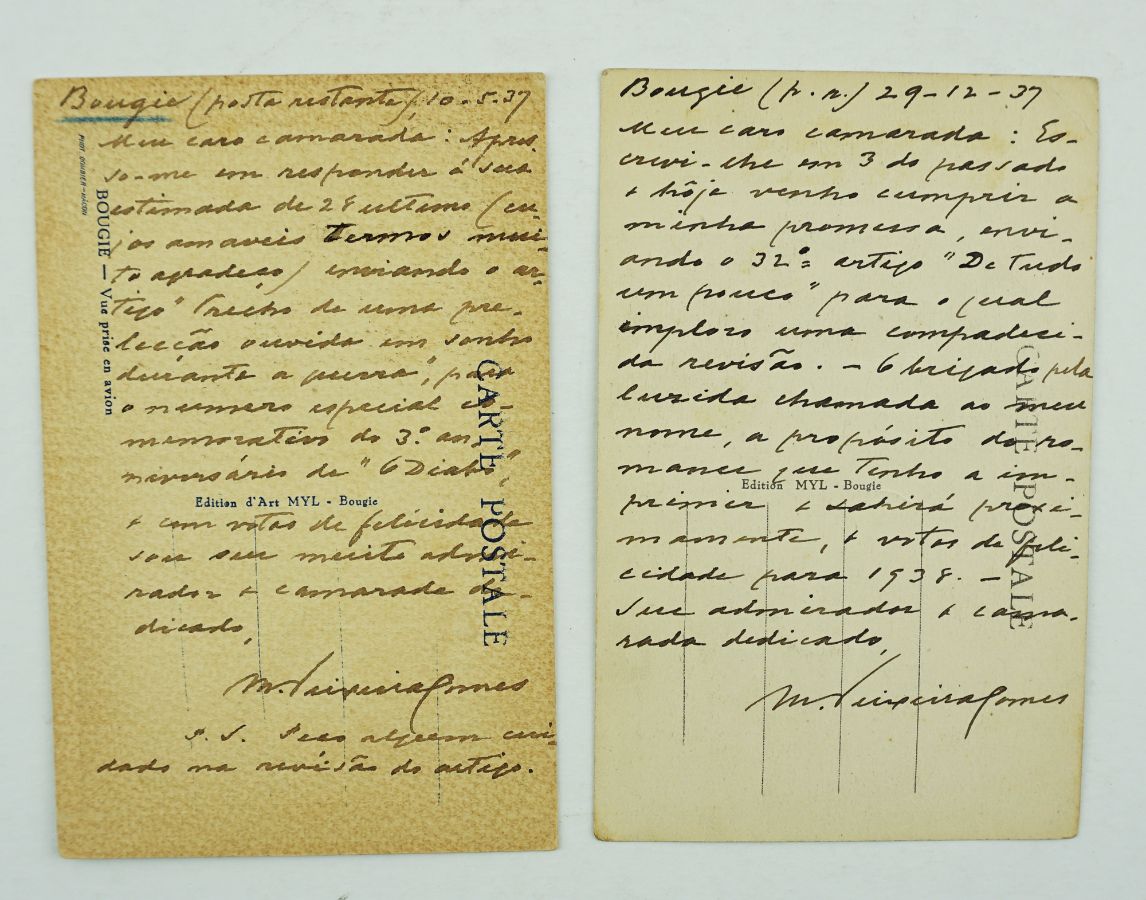 Bougie (posta restante) 10-5-37
Meu caro camarada: Apres-
so-me em responder á sua
estimada de 28 ultimo (cu-
jos amaveis termos mui-
to agradeço) enviando o ar-
tigo "Trecho de uma pre-
lecção ouvida em sonho
durante a guerra", para
o numero especial co-
memorativo do 3.º an-
niversário de "O Diabo",
e com votos de felicidade
sou seu muito admi-
rador e camarada de-
dicado,
M. Teixeira Gomes
P.S. Peço algum cui-
dado na revisão do artigo.
BOUGIE — Vue prise en avion
Edition d'Art MYL - Bougie
CARTE POSTALE
Bougie (p. r.) 29-12-37
Meu caro camarada: Es-
crevi-lhe em 3 do passado
e hôje venho cumprir a
minha promessa, envi-
ando o 32º artigo "De tudo
um pouco" para o qual
imploro uma compadeci-
da revisão. - Obrigado pela
luzida chamada ao meu
nome, a propósito do ro-
mance que tenho a im-
primir e sahirá proxi-
mamente, e votos de feli-
cidade para 1938. -
Seu admirador e cama-
rada dedicado,
M. Teixeira Gomes
Edition MYL - Bougie
CARTE POSTALE